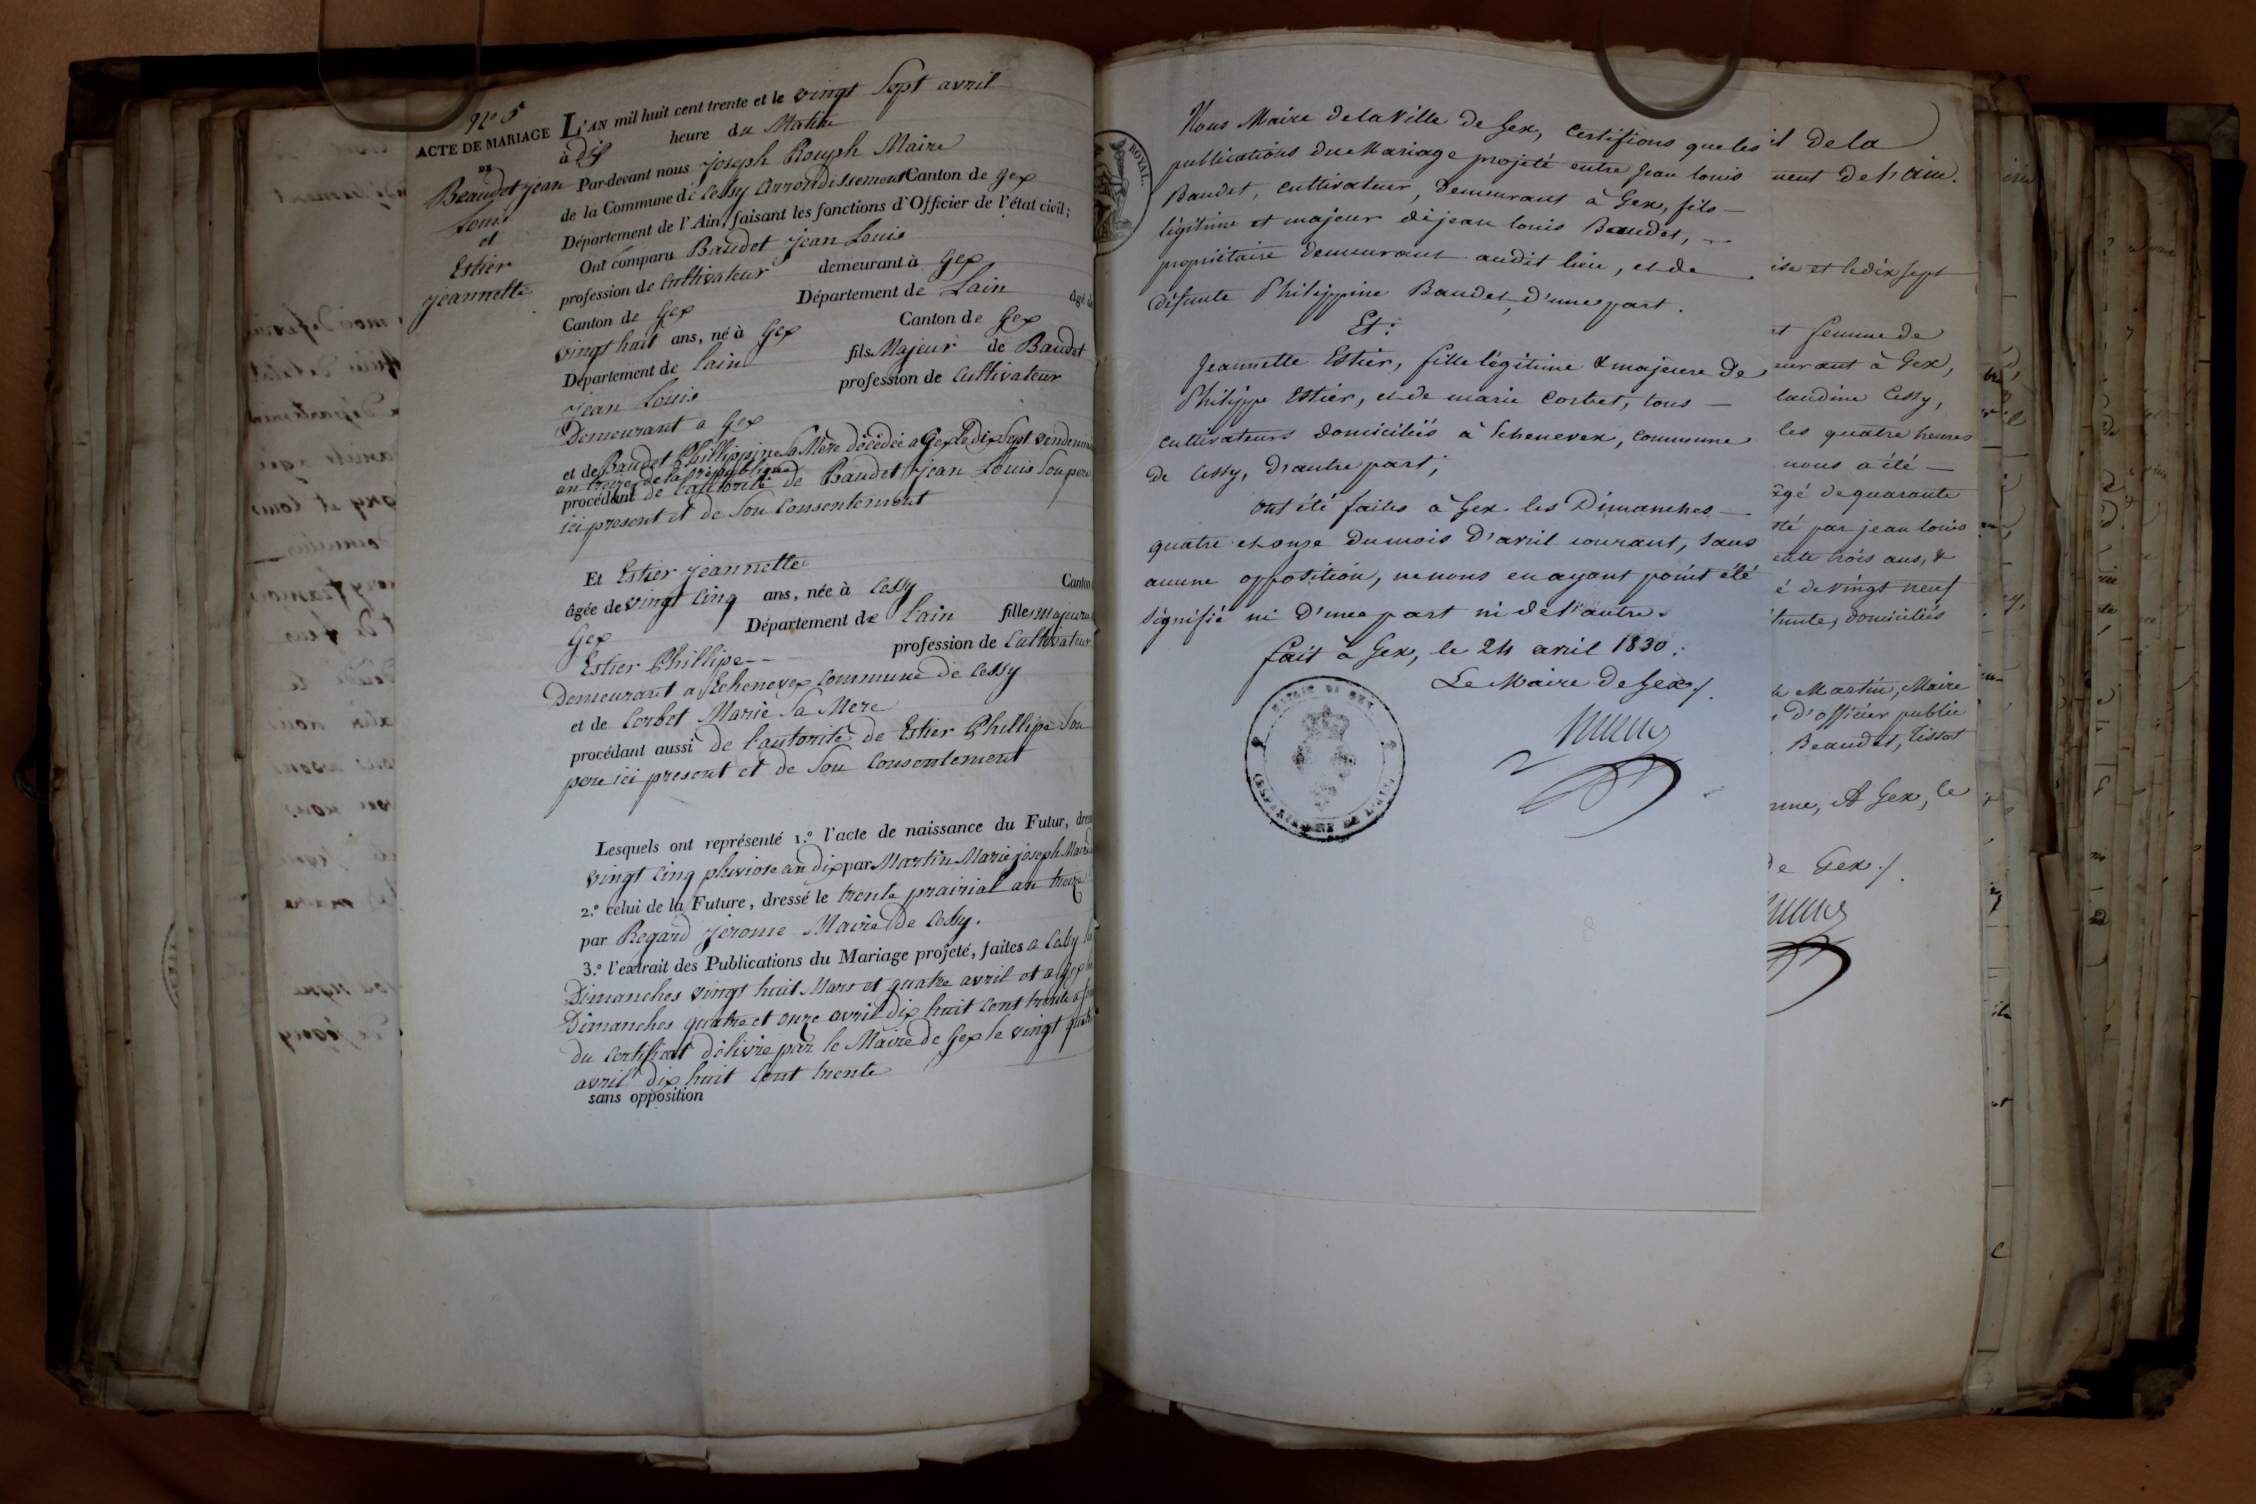 N.º 5
ACTE DE MARIAGE
DE
Beaudet jean
Louis
et
Estier
jeannette
L'AN mil huit cent trente et le vingt Sept avril
à dix heure du Matin
Par-devant nous joseph Rouph Maire
de la Commune de Cessy arrondissement Canton de Gex
Département de l'Ain, faisant les fonctions d'Officier de l'état civil;
Ont comparu Baudet jean Louis
profession de Cultivateur demeurant à Gex
Canton de Gex Département de Lain âgé de
vingt huit ans, né à Gex Canton de Gex
Département de Lain fils Majeur de Baudet
jean Louis profession de Cultivateur
Demeurant a Gex
et de Baudet Phillippine Sa Mère décédée a Gex Le dix Sept vendem
an treize de la république
procédant de l'autorité de Baudet jean Louis Son pere
ici present et de Son Consentement
Et Estier jeannette
âgée de vingt Cinq ans, née à Cessy Canton
Gex Département de Lain fille majeure
Estier Phillipe profession de Cultivateur
Demeurant a Echenevex Commune de Cessy
et de Corbet Marie Sa Mere
procédant aussi de l'autorité de Estier Phillipe Son
pere ici present et de Son Consentement
Lesquels ont représenté 1.º l'acte de naissance du Futur, dres
vingt Cinq pluviose an dix par Martin Marie joseph Maire
2.º celui de la Future, dressé le trente prairial an treize
par Regard jerome Maire de Cessy.
3.º l'extrait des Publications du Mariage projeté, faites a Cessy les
Dimanches vingt huit Mars et quatre avril et a Gex les
Dimanches quatre et onze avril dix huit Cent trente
du Certificat délivré par le Maire de Gex le vingt quatre
avril dix huit Cent trente
sans opposition
ROYAL.
Nous Maire de la Ville de Gex, Certifions que les
publications du Mariage projeté entre Jean Louis
Baudet, Cultivateur, Demeurant à Gex, fils —
légitime et majeur de jean louis Baudet, —
propriétaire Demeurant audit lieu, et de
défunte Philippine Baudet, d'une part.
Et:
Jeannette Estier, fille légitime & majeure de
Philippe Estier, et de marie Corbet, tous —
cultivateurs domiciliés à Echenevex, commune
de Cessy, d'autre part;
ont été faites à Gex les Dimanches —
quatre et onze du mois d'avril courant, Sans
aucune opposition, ne nous en ayant point été
signifié ni D'une part ni de l'autre.
fait à Gex, le 24 avril 1830.
Le Maire de Gex /.
MAIRIE DE GEX
DEPARTEMENT DE L'AIN
il de la
ment de l'ain.
ise et le dix sept
et femme de
eurant à Gex,
laudine Cessy,
les quatre heures
nous a été —
âgé de quarante
té par jean louis
ente trois ans, &
é de vingt neuf
funte, domiciliés
h Martin, Maire
, d'officier public
Beaudet, tissot
rme, A Gex, le
de Gex /.